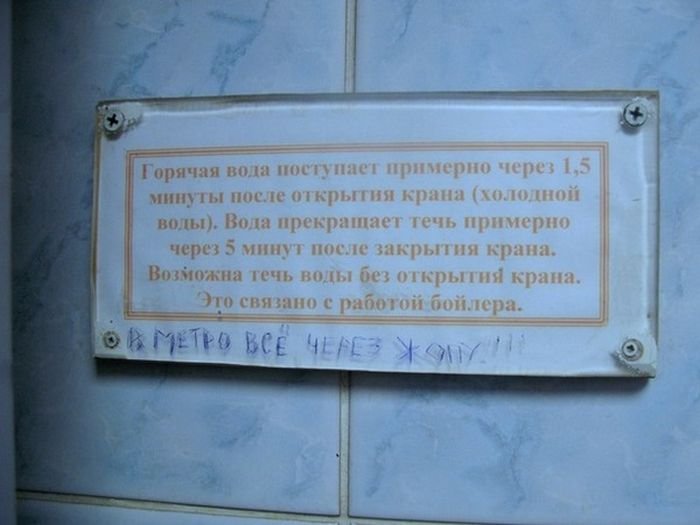 Горячая вода поступает примерно через 1,5
минуты после открытия крана (холодной
воды). Вода прекращает течь примерно
через 5 минут после закрытия крана.
Возможна течь воды без открытия крана.
Это связано с работой бойлера.
В МЕТРО ВСЁ ЧЕРЕЗ ЖОПУ!!!